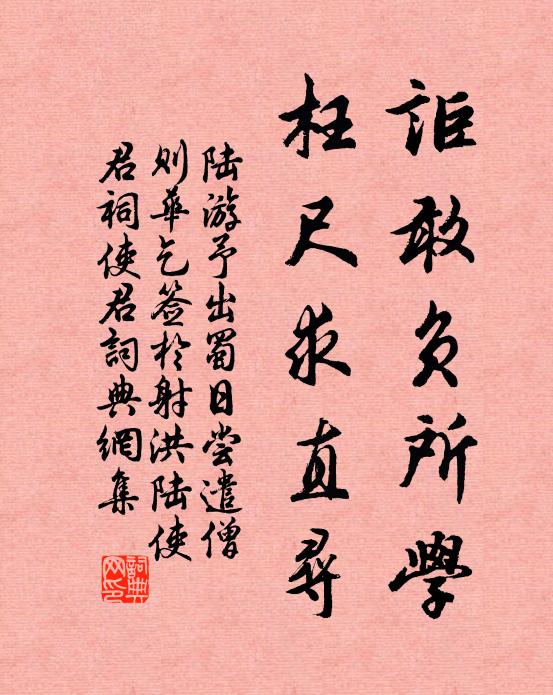 詎敢負所學
枉尺求直尋
陆游予出蜀日尝遣僧
则華乞签於射洪陆使
君祠使君詞典網集
詞典网印